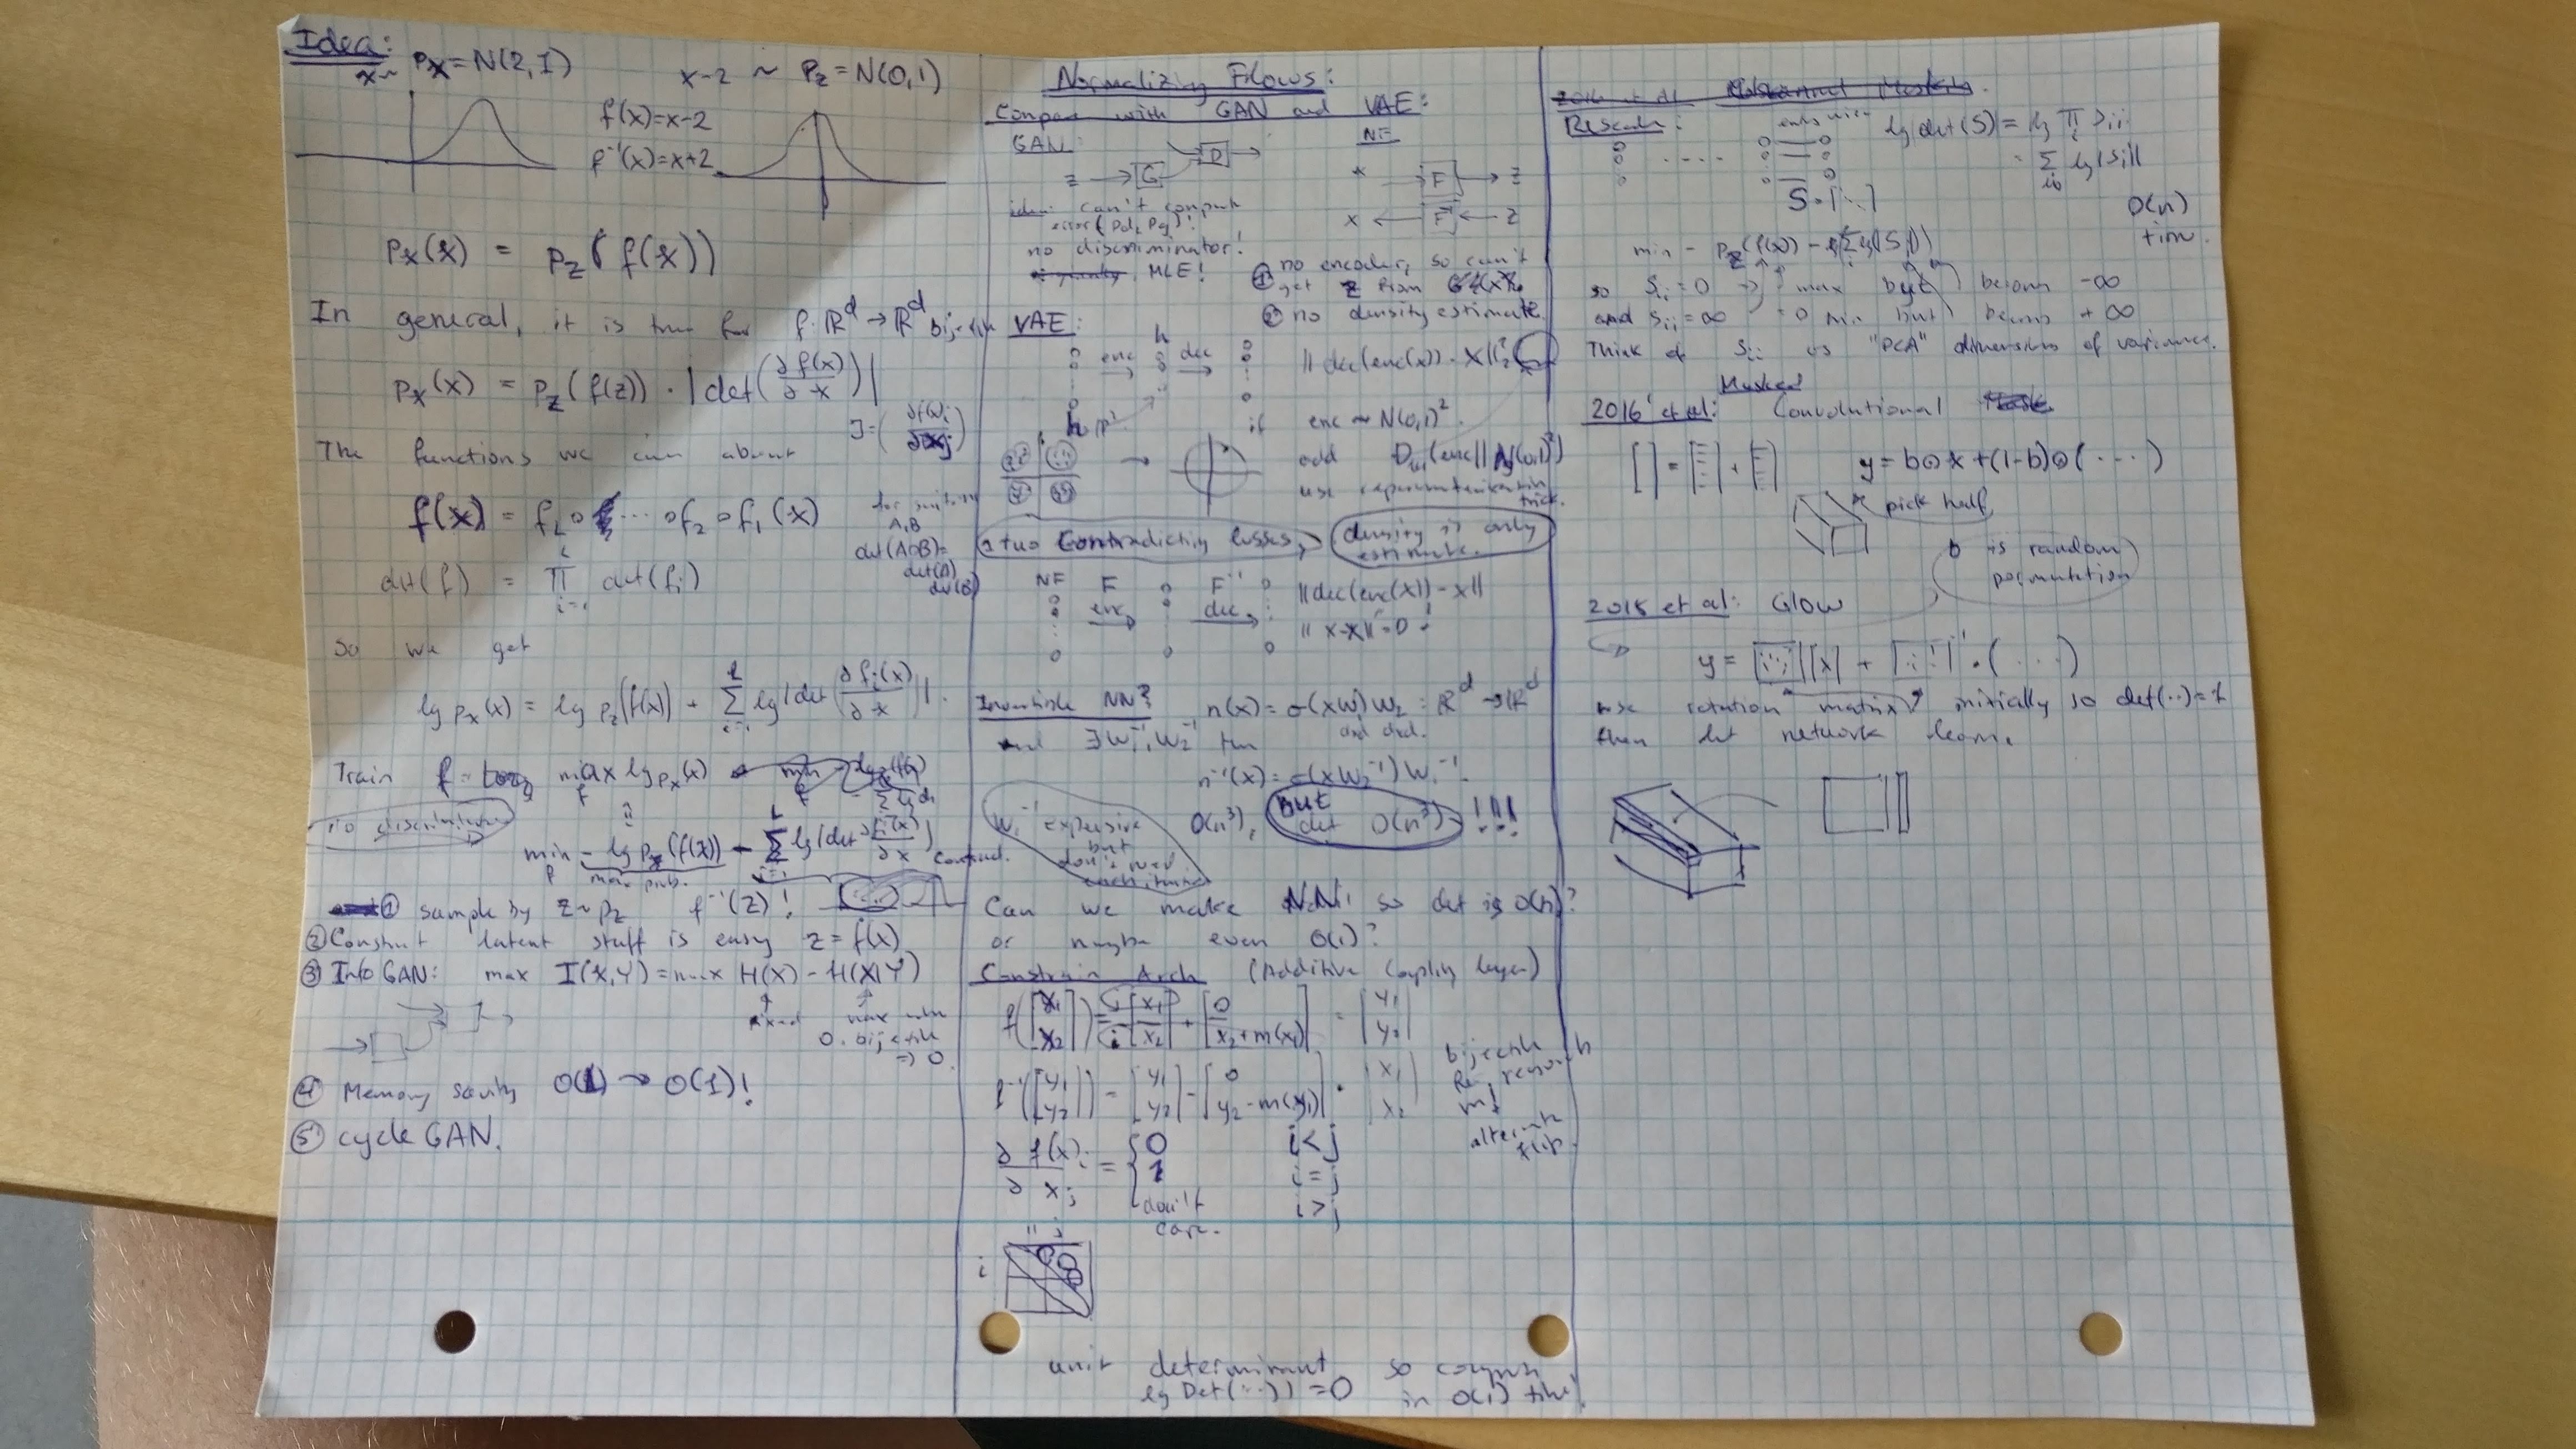 Idea:
x~ Px = N(2, I)
x-2 ~ Pz = N(0,1)
f(x)=x-2
f⁻¹(x)=x+2
Px(x) = Pz(f(x))
In general, it is true for f: ℝᵈ → ℝᵈ
Px(x) = Pz(f(z)) · |det(∂f(x)/∂x)|
J = (∂f(x)i/∂xj)
The functions we care about
f(x) = fL ∘ ... ∘ f2 ∘ f1(x)
A,B
det(A∘B)=
det(A)
det(B)
det(f) = ∏ det(fi)
So we get
lg px(x) = lg pz(f(x)) + Σ lg|det(∂fi(x)/∂x)|.
Train f max lg px(x)
no discriminator
min - lg pz(f(x)) - Σ lg|det ∂fi(x)/∂x|
max prob.
① sample by z~pz f⁻¹(z)!
② Construct latent stuff is easy z = f(x)
③ InfoGAN: max I(X,Y) = max H(X) - H(X|Y)
fixed
max when
0. bijective
=> 0
④ Memory saving O(L) → O(1)!
⑤ cycleGAN.
Normalizing Flows:
Compare with GAN and VAE:
GAN:
z → G D →
NF
x → F → z
x ← F⁻¹ ← z
idea: can't compute
error(Pd, Pg)!
no discriminator!
MLE!
① no encoder, so can't
get z from
② no density estimate.
VAE:
h
enc dec
||dec(enc(x)) - x||²₂
if enc ~ N(0,1)².
add (enc||N(0,1)²)
use reparameterization
trick.
two Contradicting losses,
density is only
estimate.
NF F F⁻¹
enc dec
||dec(enc(x)) - x||
||x-x||=0!
Invertible NN?
n(x) = σ(xW₁)W₂ : ℝᵈ → ℝᵈ
dxd dxd.
and ∃W₁⁻¹, W₂⁻¹ then
n⁻¹(x) = σ(xW₂⁻¹)W₁⁻¹
W⁻¹ expensive
but
don't need
O(n³),
But
det O(n³)
!!!
Can we make NN so det is O(n)?
or maybe even O(1)?
Constrain Arch (Additive Coupling layer)
f([x1 x2]) = [x1 x2] + [0 x2+m(x1)] = [y1 y2]
f⁻¹([y1 y2]) = [y1 y2] - [0 y2-m(y1)] = [x1 x2]
bijective
m!
alternate
flip.
∂f(x)i/∂xj = { 0 i<j
1 i=j
don't care. i>j
j
i
unit determinant so compute
lg Det(...) = 0 in O(1) time!
Rescale:
lg det(S) = lg ∏ Sii
= Σ lg|Sii|
S=[...]
O(n)
time.
min - pz(f(x)) - Σ lg(|S|)
so Sii = 0 => max but becomes -∞
and Sii = ∞ =0 min but becomes +∞
Think of Sii as "PCA" dimensions of variance.
2016 et al: Masked Convolutional
[ ] = [ ] + [ ]
y = b⊙x + (1-b)⊙(...)
pick half
b is random
permutation
2018 et al: Glow
y = [...][x] + [...]·(...)
use rotation matrix initially so det(..)=1
then let network learn.